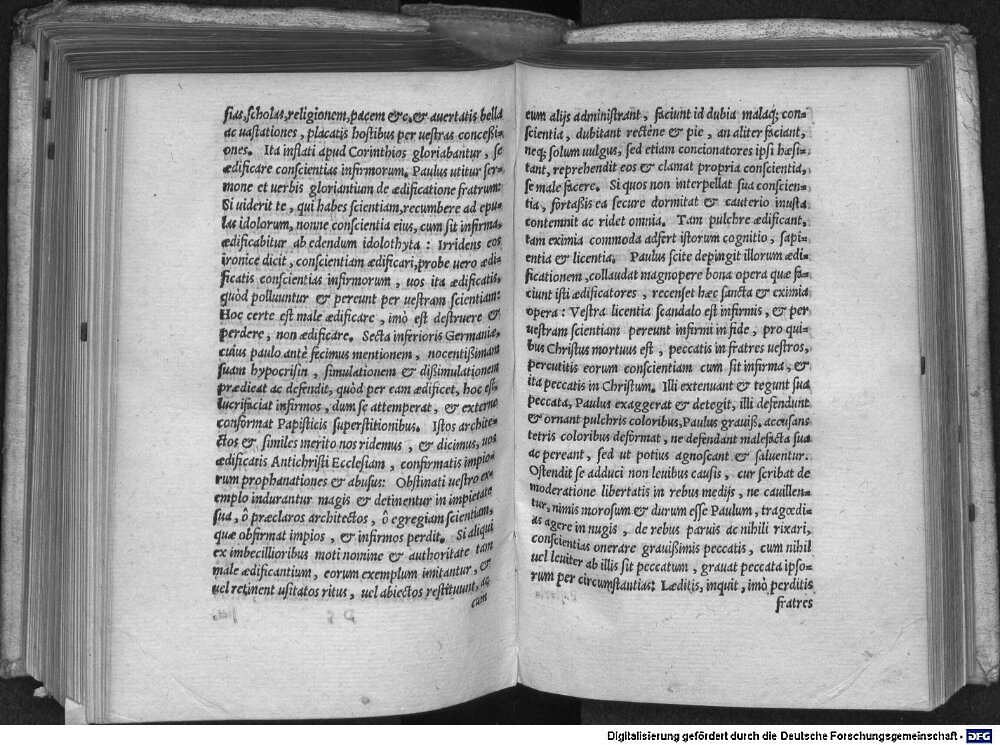 sias, scholas, religionem, pacem &c. & auertatis bella
ac uastationes, placatis hostibus per uestras concessi-
ones. Ita inflati apud Corinthios gloriabantur, se
ædificare conscientias infirmorum. Paulus utitur ser-
mone et uerbis gloriantium de ædificatione fratrum:
Si uiderit te, qui habes scientiam, recumbere ad epu-
las idolorum, nonne conscientia eius, cum sit infirma,
ædificabitur ab edendum idolothyta: Irridens eos
ironice dicit, conscientiam ædificari, probe uero ædi-
ficatis conscientias infirmorum, uos ita ædificatis,
quòd polluuntur & pereunt per uestram scientiam:
Hoc certe est male ædificare, imò est destruere &
perdere, non ædificare. Secta inferioris Germaniæ,
cuius paulo antè fecimus mentionem, nocentißimam
suam hypocrisin, simulationem & dißimulationem
prædicat ac defendit, quòd per eam ædificet, hoc est,
lucrifaciat infirmos, dum se attemperat, & externe
conformat Papisticis superstitionibus. Istos archite-
ctos & similes merito nos ridemus, & dicimus, uos
ædificatis Antichristi Ecclesiam, confirmatis impio-
rum prophanationes & abusus: Obstinati uestro ex-
emplo indurantur magis & detinentur in impietate
sua, ô præclaros architectos, ô egregiam scientiam,
quæ obfirmat impios, & infirmos perdit. Si aliqui
ex imbecillioribus moti nomine & authoritate tam
male ædificantium, eorum exemplum imitantur, &
uel retinent usitatos ritus, uel abiectos restituunt, ac
cum
eum alijs administrant, faciunt id dubia malaq; con-
scientia, dubitant rectène & pie, an aliter faciant,
neq; solum uulgus, sed etiam concionatores ipsi hæsi-
tant, reprehendit eos & clamat propria conscientia,
se male facere. Si quos non interpellat sua conscien-
tia, fortaßis ea secure dormitat & cauterio inusta
contemnit ac ridet omnia. Tam pulchre ædificant,
tam eximia commoda adfert istorum cognitio, sapi-
entia & licentia. Paulus scite depingit illorum ædi-
ficationem, collaudat magnopere bona opera quæ fa-
ciunt isti ædificatores, recenset hæc sancta & eximia
opera: Vestra licentia scandalo est infirmis, & per
uestram scientiam pereunt infirmi in fide, pro qui-
bus Christus mortuus est, peccatis in fratres uestros,
percutitis eorum conscientiam cum sit infirma, &
ita peccatis in Christum. Illi extenuant & tegunt sua
peccata, Paulus exaggerat & detegit, illi defendunt
& ornant pulchris coloribus, Paulus grauiß. accusans
tetris coloribus deformat, ne defendant malefacta sua
ac pereant, sed ut potius agnoscant & saluentur.
Ostendit se adduci non leuibus causis, cur scribat de
moderatione libertatis in rebus medijs, ne cauillen-
tur, nimis morosum & durum esse Paulum, tragœdi-
as agere in nugis, de rebus paruis ac nihili rixari,
conscientias onerare grauißimis peccatis, cum nihil
uel leuiter ab illis sit peccatum, grauat peccata ipso-
rum per circumstantias: Læditis, inquit, imò perditis
fratres
Digitalisierung gefördert durch die Deutsche Forschungsgemeinschaft - DFG